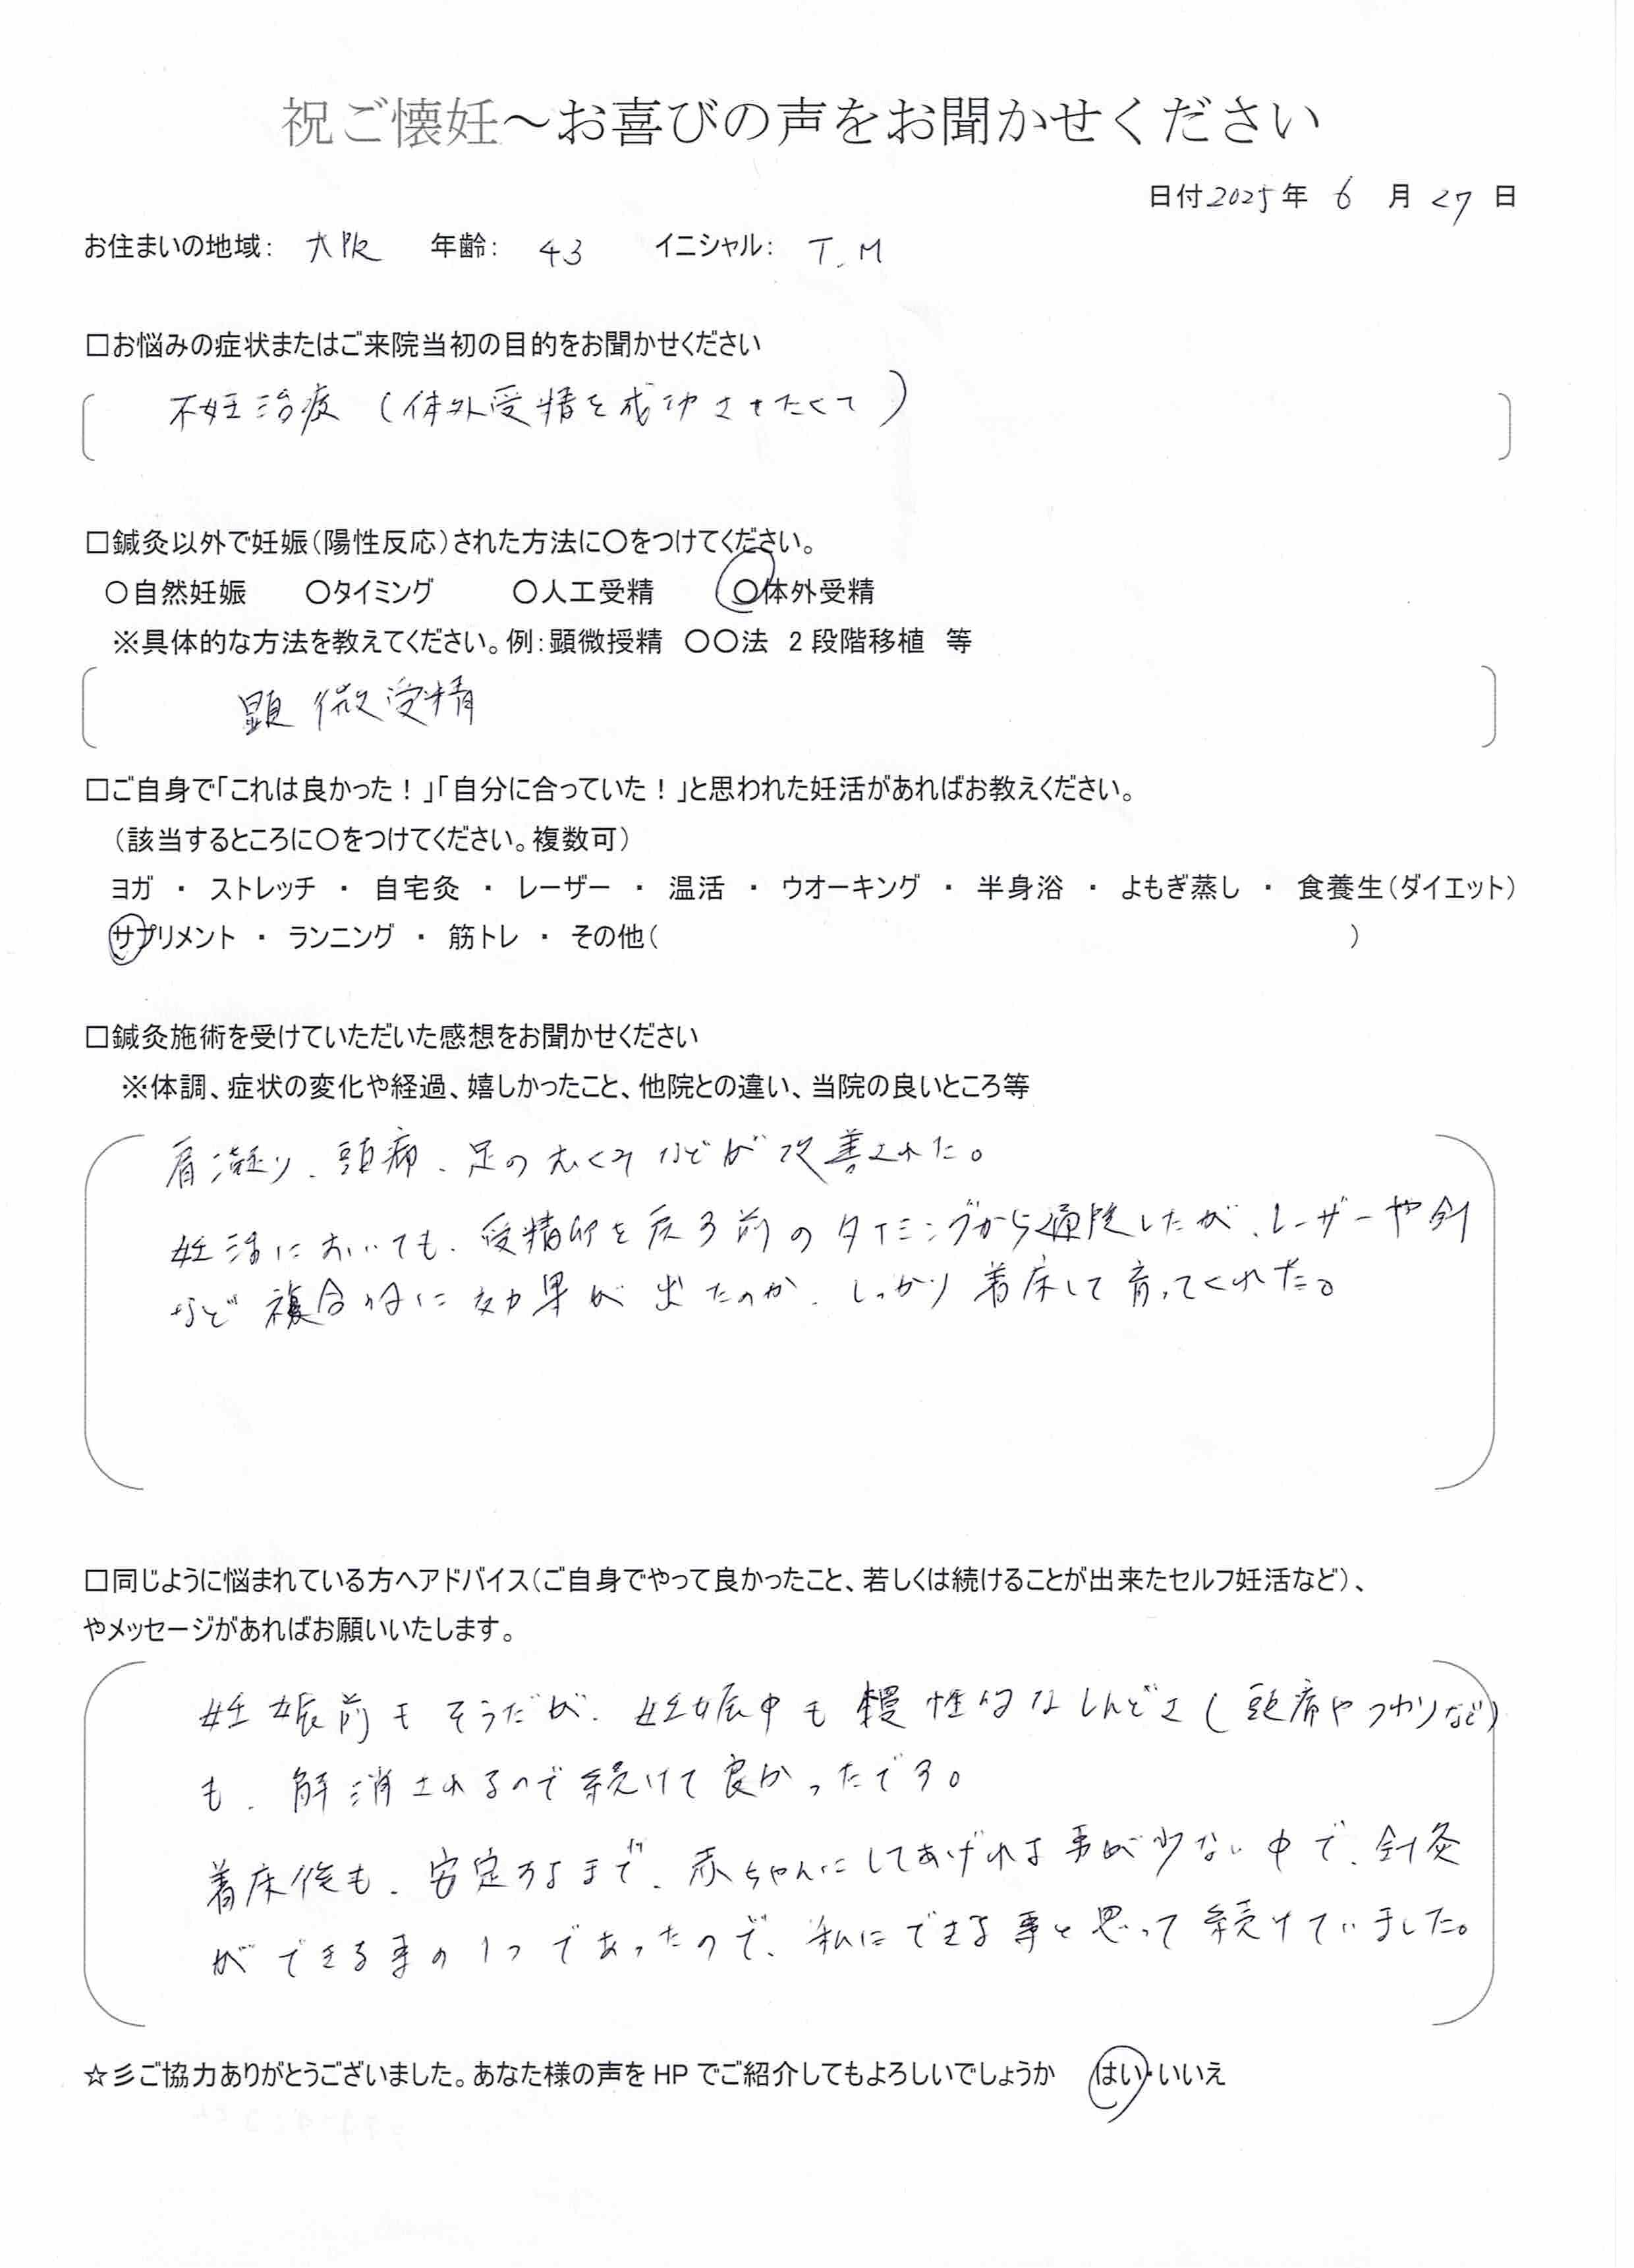 祝ご懐妊～お喜びの声をお聞かせください
日付2025年 6 月 27 日
お住まいの地域： 大阪 年齢： 43 イニシャル： T.M
□お悩みの症状またはご来院当初の目的をお聞かせください
不妊治療（体外受精を成功させたくて）
□鍼灸以外で妊娠（陽性反応）された方法に〇をつけてください。
〇自然妊娠 〇タイミング 〇人工受精 〇体外受精
※具体的な方法を教えてください。例：顕微授精 〇〇法 2段階移植 等
顕微受精
□ご自身で「これは良かった！」「自分に合っていた！」と思われた妊活があればお教えください。
（該当するところに〇をつけてください。複数可）
ヨガ ・ ストレッチ ・ 自宅灸 ・ レーザー ・ 温活 ・ ウオーキング ・ 半身浴 ・ よもぎ蒸し ・ 食養生（ダイエット）
サプリメント ・ ランニング ・ 筋トレ ・ その他（ ）
□鍼灸施術を受けていただいた感想をお聞かせください
※体調、症状の変化や経過、嬉しかったこと、他院との違い、当院の良いところ等
肩凝り、頭痛、足のむくみなどが改善された。
妊活においても、受精卵を戻す前のタイミングから通院したが、レーザーや針
など複合的に効果が出たのか、しっかり着床して育ってくれた。
□同じように悩まれている方へアドバイス（ご自身でやって良かったこと、若しくは続けることが出来たセルフ妊活など）、
やメッセージがあればお願いいたします。
妊娠前もそうだが、妊娠中も慢性的なしんどさ（頭痛やつわりなど）
も、解消されるので続けて良かったです。
着床後も、安定するまで、赤ちゃんにしてあげれる事が少ない中で、針灸
ができる事の1つであったので、私にできる事と思って続けていました。
☆彡ご協力ありがとうございました。あなた様の声をHPでご紹介してもよろしいでしょうか はい・いいえ